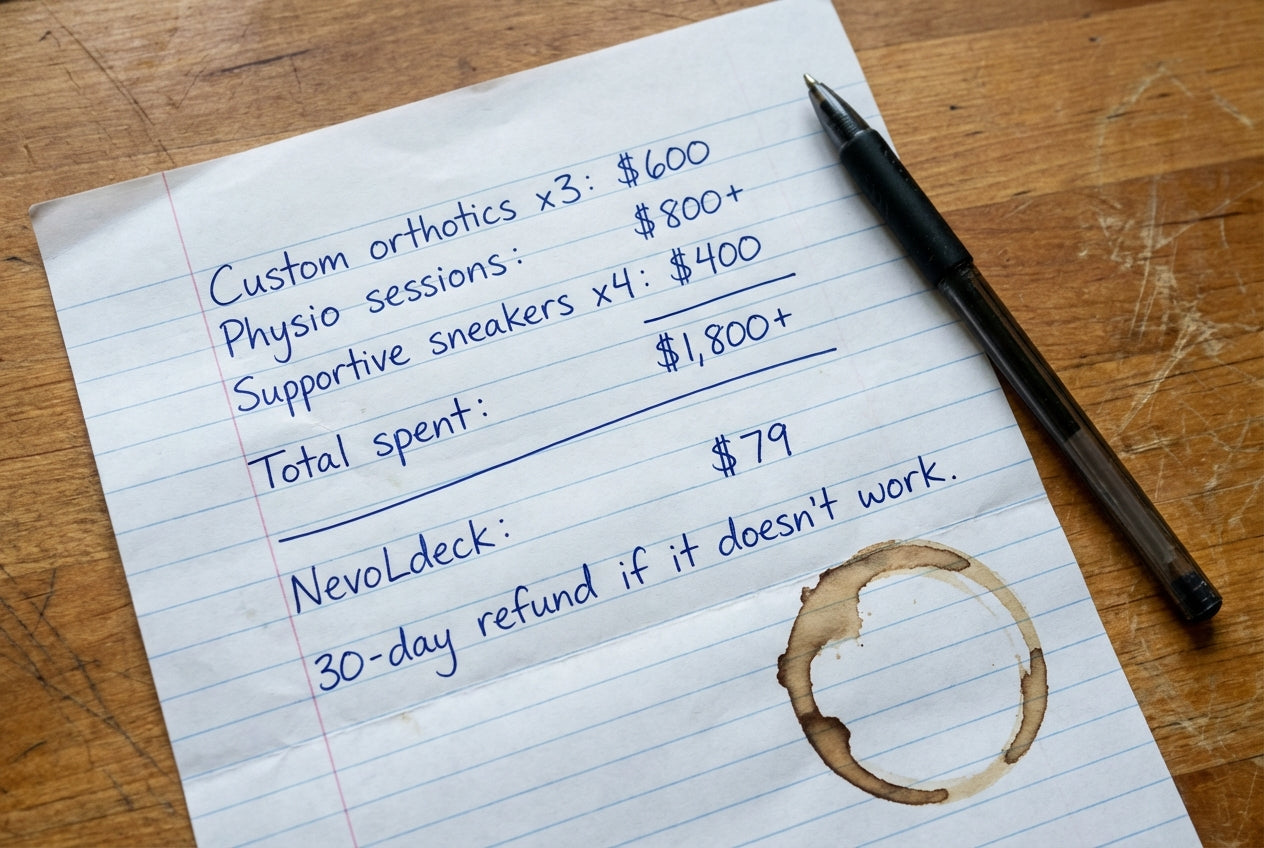 Custom orthotics x3: $600
Physio sessions: $800+
Supportive sneakers x4: $400
Total spent: $1,800+
NevoLdeck: $79
30-day refund if it doesn't work.